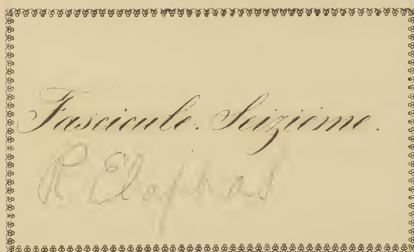 Fascicule. Seizième.
R. Elaphas